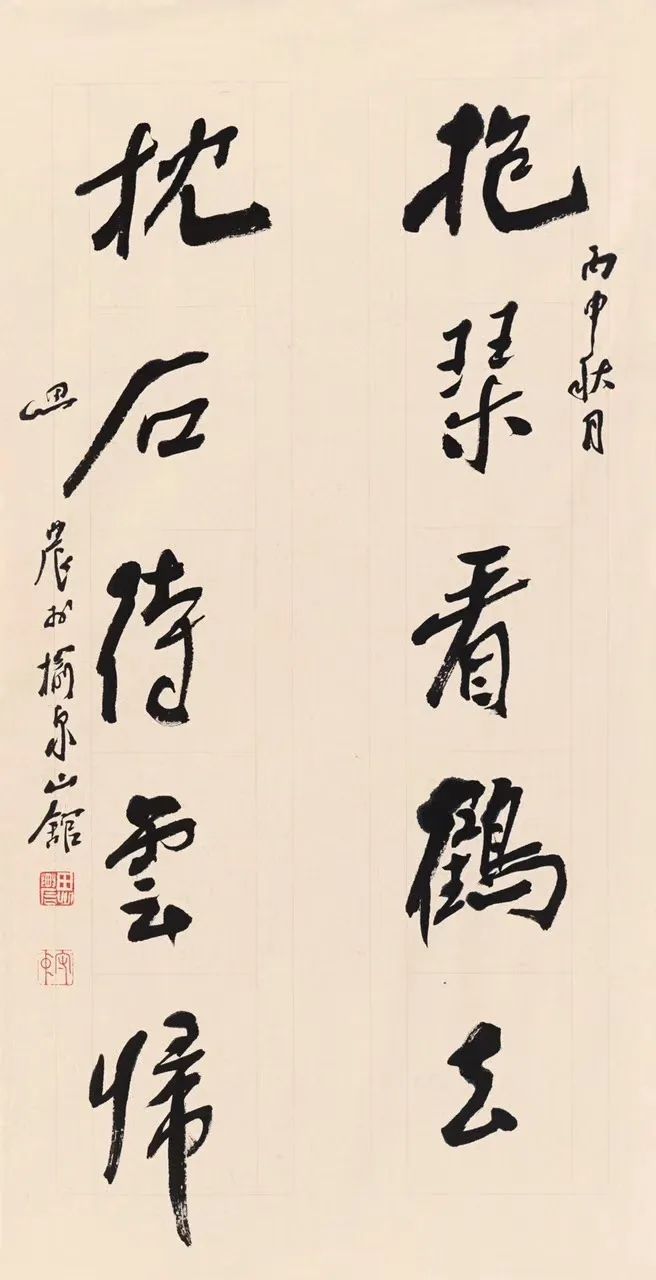 丙申秋月
抱琴看鶴去
枕石待雲歸
思農於榆泉山館